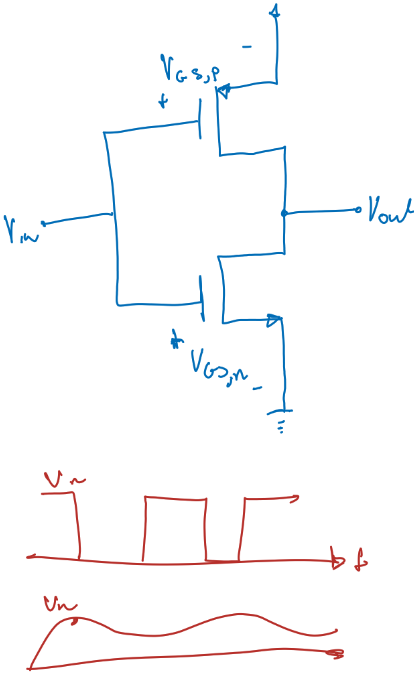 -
V_GS,P
+
V_in
V_out
+
V_GS,n
-
V_in
t
V_in